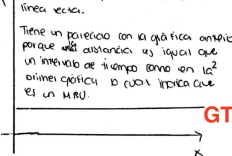 línea recta.
Tiene un parecido con la gráfica anterior
porque la distancia es igual que
un intervalo de tiempo como en la 2
primer gráfica lo cual indica que
es un MRU.
GT
x